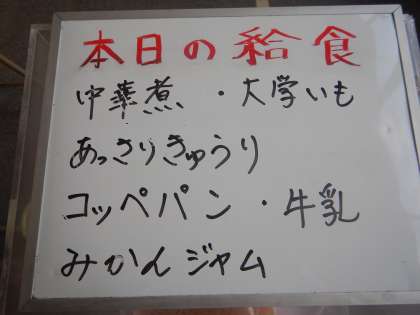 本日の給食
中華煮・大学いも
あっさりきゅうり
コッペパン・牛乳
みかんジャム